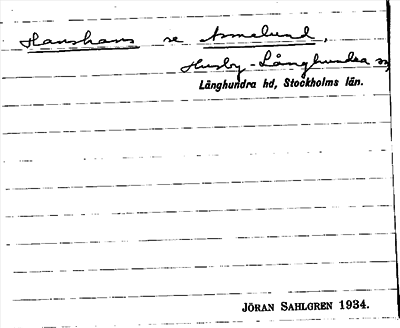 Hanshans se Asmelund,
Husby-Långhundra sn,
Långhundra hd, Stockholms län.
JÖRAN SAHLGREN 1934.